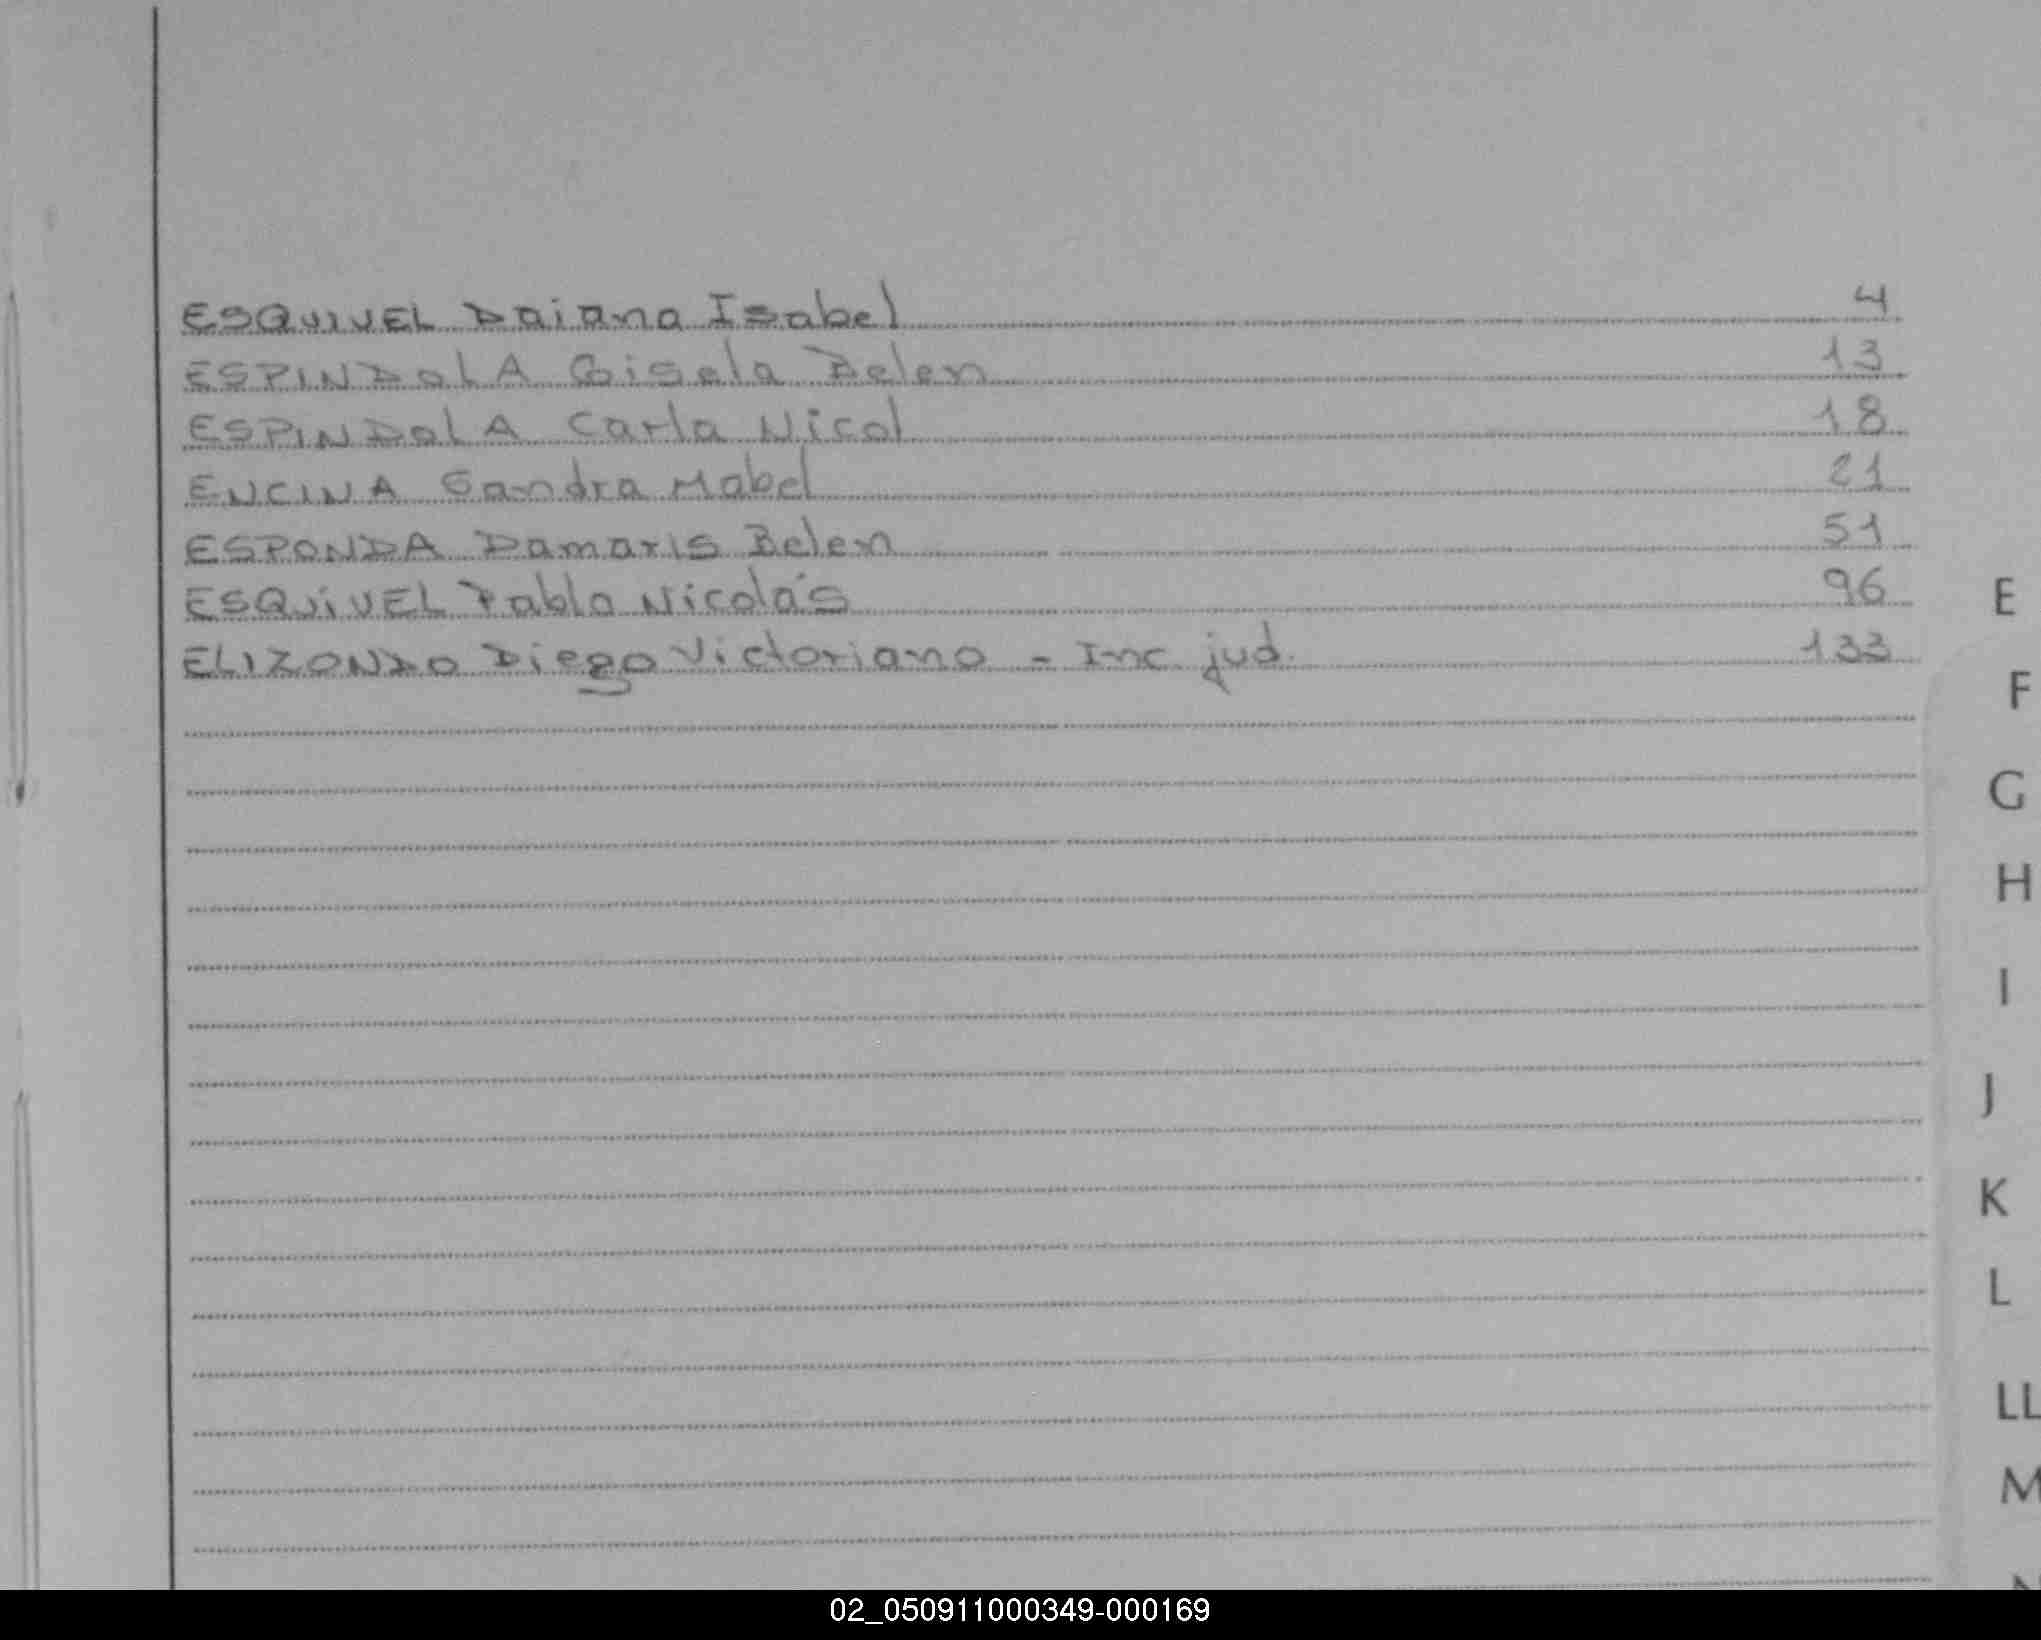 ESQUIVEL Daiana Isabel 4
ESPINDOLA Gisela Belen 13
ESPINDOLA Carla Nicol 18
ENCINA Sandra Mabel 21
ESPONDA Damaris Belen 51
ESQUIVEL Pablo Nicolás 96
ELIZONDO Diego Victoriano - Inc jud. 133
E
F
G
H
I
J
K
L
LL
M
02_050911000349-000169